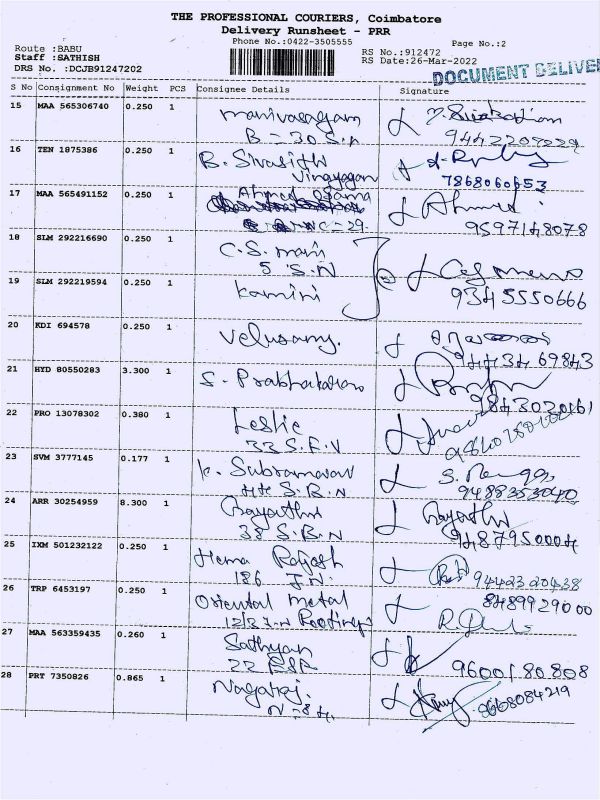 THE PROFESSIONAL COURIERS, Coimbatore
Delivery Runsheet - PRR
Phone No.:0422-3505555
Page No.:2
Route :BABU
Staff :SATHISH
DRS No. :DCJB91247202
RS No.:912472
RS Date:26-Mar-2022
DOCUMENT DELIVE
S No Consignment No Weight PCS Consignee Details Signature
15 MAA 565306740 0.250 1 manivasagam
B-30 S.N
9442209229
16 TEN 1875386 0.250 1 B. Sivasithi
Vinayagan
7868060653
17 MAA 565491152 0.250 1 Ahmed Osama Ahmed
NC-29 9597148078
18 SLM 292216690 0.250 1 C.S. mani
5 S.N
19 SLM 292219594 0.250 1 Kamini
9345550666
20 KDI 694578 0.250 1 Velusamy.
9443469843
21 HYD 80550283 3.300 1 S. Prabhakaran
9843020161
22 PRO 13078302 0.380 1 Leslie
33 S.F.V
23 SVM 3777145 0.177 1 K. Subramavan
44 S.B.N 9488353040
24 ARR 30254959 8.300 1 Gayathri Gayathri
38 S.B.N 9487950004
25 IXM 501232122 0.250 1 Hema Rajesh
186 J.N. 9442320438
26 TRP 6453197 0.250 1 Oriental metal 8489929000
12/33.N Roofings
27 MAA 563359435 0.260 1 Sathyan
22 9600180808
28 PRT 7350826 0.865 1 Nagaraj.
N-84. 8668084219